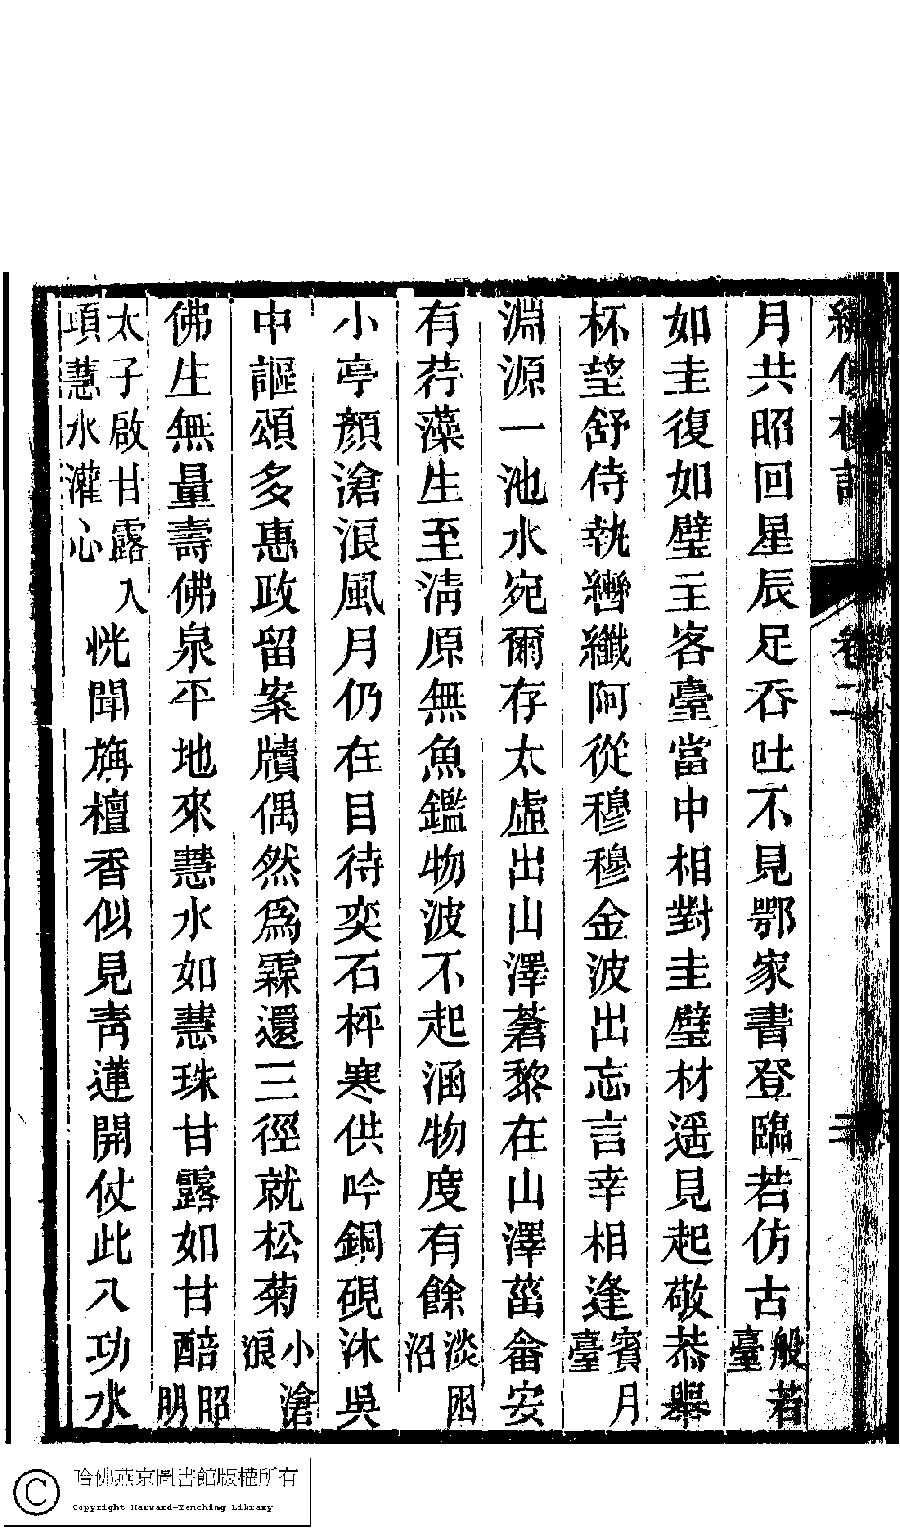 卷二
月共昭回星辰足吞吐不見鄂家書登臨若仿古般若臺
如圭復如璧主客臺當中相對圭璧材遥見起敬恭舉
杯望舒侍執轡纖阿從穆穆金波出忘言幸相逢賓月臺
淵源一池水宛爾存太虛出山澤蒼黎在山澤菑畬安
有荇藻生至淸原無魚鑑物波不起涵物度有餘淡囦沼
小亭顏滄浪風月仍在目待奕石枰寒供吟銅硯沐吳
中謳頌多惠政留案牘偶然爲霖還三徑就松菊小滄浪
佛生無量壽佛泉平地來慧水如慧珠甘露如甘醅昭明
太子啟甘露入項慧水灌心恍聞旃檀香似見靑蓮開仗此八功水
哈佛燕京圖書館版權所有
Copyright Harvard-Yenching Library